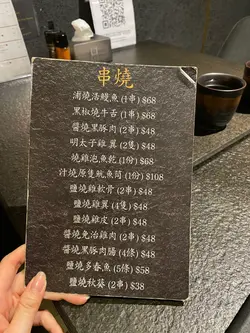 串燒
蒲燒活鰻魚 (1串) $68
黑椒燒牛舌 (1串) $68
醬燒黑豚肉 (2串) $48
明太子雞翼 (2隻) $48
燒雞泡魚乾 (1份) $68
汁燒原隻魷魚筒 (1份) $108
鹽燒雞軟骨 (2串) $48
鹽燒雞翼 (4隻) $48
鹽燒雞皮 (2串) $48
醬燒免治雞肉 (2串) $48
醬燒黑豚肉腸 (4條) $48
鹽燒多春魚 (5條) $58
鹽燒秋葵 (2串) $38